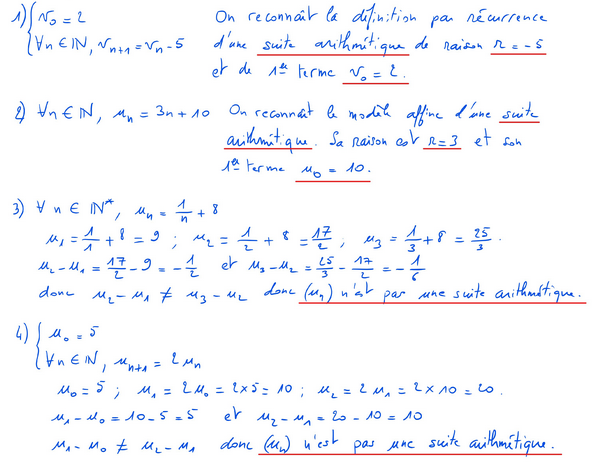 1) { v₀ = 2 On reconnaît la définition par récurrence
∀n ∈ ℕ, vₙ₊₁ = vₙ - 5 d'une suite arithmétique de raison r = -5
et de 1er terme v₀ = 2.
2) ∀n ∈ ℕ, uₙ = 3n + 10 On reconnaît le modèle affine d'une suite
arithmétique. Sa raison est r = 3 et son
1er terme u₀ = 10.
3) ∀ n ∈ ℕ*, uₙ = 1/n + 8
u₁ = 1/1 + 8 = 9 ; u₂ = 1/2 + 8 = 17/2 ; u₃ = 1/3 + 8 = 25/3.
u₂ - u₁ = 17/2 - 9 = -1/2 et u₃ - u₂ = 25/3 - 17/2 = -1/6
donc u₂ - u₁ ≠ u₃ - u₂ donc (uₙ) n'est pas une suite arithmétique.
4) { u₀ = 5
∀n ∈ ℕ, uₙ₊₁ = 2uₙ
u₀ = 5 ; u₁ = 2u₀ = 2×5 = 10 ; u₂ = 2u₁ = 2×10 = 20.
u₁ - u₀ = 10 - 5 = 5 et u₂ - u₁ = 20 - 10 = 10
u₁ - u₀ ≠ u₂ - u₁ donc (uₙ) n'est pas une suite arithmétique.